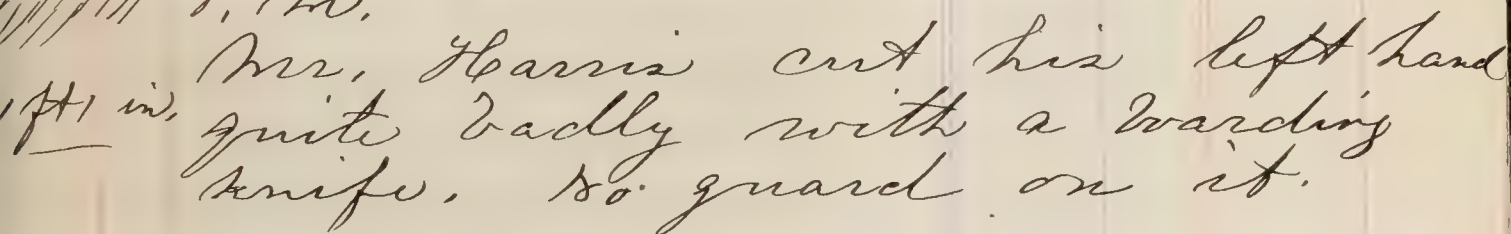 Mr. Harris cut his left hand
ft, in. quite badly with a boarding
knife. No guard on it.